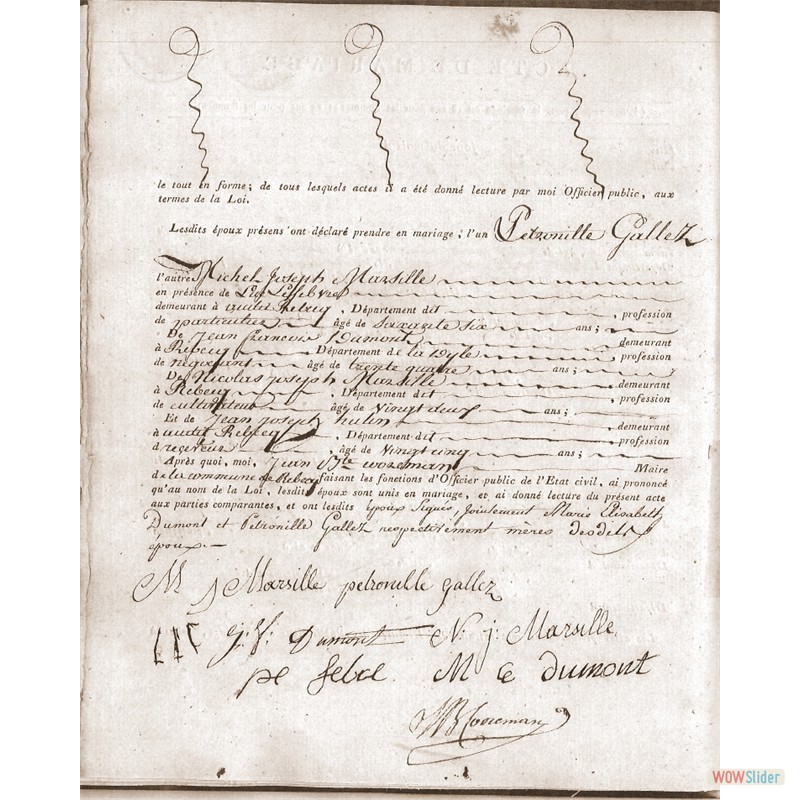 le tout en forme; de tous lesquels actes il a été donné lecture par moi Officier public, aux
termes de la Loi.
Lesdits époux présens ont déclaré prendre en mariage; l'un Petronille Gallez
l'autre Michel Joseph Marsille
en présence de Lefebvre
demeurant à audit Rebecq, Département dit profession
de particulier âgé de Soixante Six ans;
De Jean François Dumont demeurant
à Rebecq Département de la Dyle profession
de négociant âgé de trente quatre ans;
De Nicolas Joseph Marsille demeurant
à Rebecq, Département dit profession
de cultivateur âgé de Vingt deux ans;
Et de Jean Joseph hulin demeurant
à audit Rebecq, Département dit profession
de receveur âgé de Vingt cinq ans;
Après quoi, moi, Jean Bte Cooreman Maire
de la commune de Rebecq faisant les fonctions d'Officier public de l'Etat civil, ai prononcé
qu'au nom de la Loi, lesdits époux sont unis en mariage, et ai donné lecture du présent acte
aux parties comparantes, et ont lesdits époux Signés, Jointement Marie Elisabeth
Dumont et Petronille Gallez respectivement mères desdits
époux.
M j Marsille petronille gallez
j: f: Dumont N: j: Marsille
pe febve M e dumont
JB Cooreman
WOWSlider